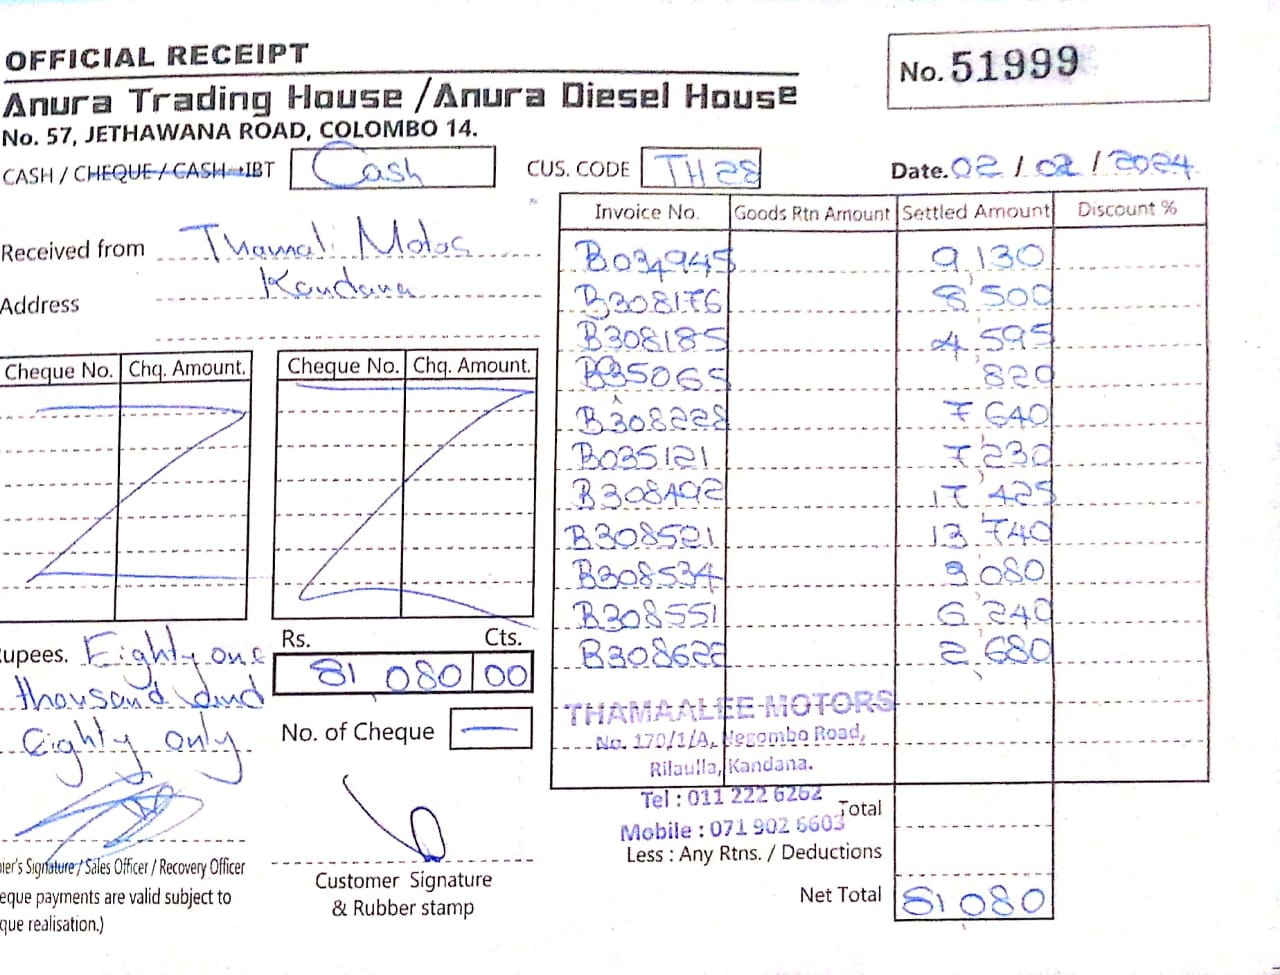 OFFICIAL RECEIPT
No. 51999
Anura Trading House / Anura Diesel House
No. 57, JETHAWANA ROAD, COLOMBO 14.
CASH / CHEQUE / CASH IBT Cash
CUS. CODE TH28
Date. 02 / 02 / 2024
Received from Thamali Motos
Kandana
Address
Cheque No. Chq. Amount.
Cheque No. Chq. Amount.
Invoice No. Goods Rtn Amount Settled Amount Discount %
B034945 9,130
B308176 8,500
B308185 4,595
B35065 820
B308228 7,640
B035121 7,230
B308492 17,425
B308521 13,740
B308534 3,080
B308551 6,240
B308622 2,680
upees. Eighty one
thousand and
Eighty only
Rs. Cts.
81 080 00
No. of Cheque
THAMAALEE MOTORS
No. 170/1/A, Negombo Road,
Rilaulla, Kandana.
Tel : 011 222 6262
Mobile : 071 902 6603
Total
Less : Any Rtns. / Deductions
Net Total 81 080
ier's Signature / Sales Officer / Recovery Officer
eque payments are valid subject to
que realisation.)
Customer Signature
& Rubber stamp